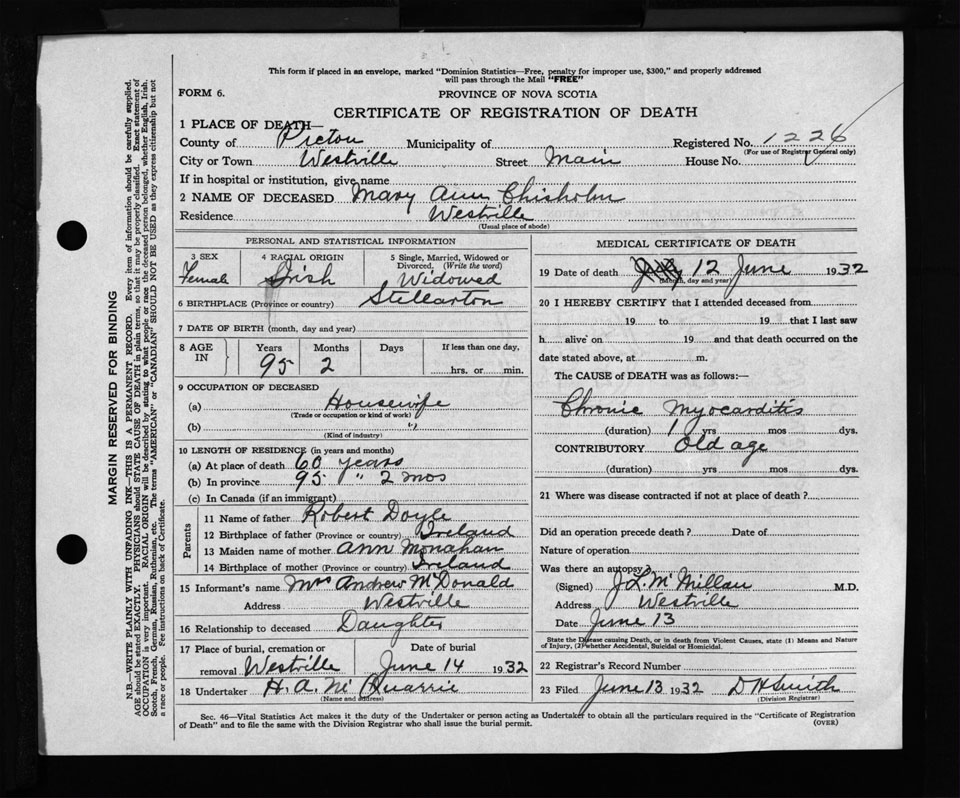 This form if placed in an envelope, marked "Dominion Statistics—Free, penalty for improper use, $300," and properly addressed
will pass through the Mail "FREE"
FORM 6. PROVINCE OF NOVA SCOTIA
CERTIFICATE OF REGISTRATION OF DEATH
1 PLACE OF DEATH—
County of Pictou Municipality of Registered No. 1226
(For use of Registrar General only)
City or Town Westville Street Main House No.
If in hospital or institution, give name
2 NAME OF DECEASED Mary Ann Chisholm
Residence Westville
(Usual place of abode)
PERSONAL AND STATISTICAL INFORMATION
3 SEX 4 RACIAL ORIGIN 5 Single, Married, Widowed or
Divorced. (Write the word)
Female Irish Widowed
6 BIRTHPLACE (Province or country) Stellarton
7 DATE OF BIRTH (month, day and year)
8 AGE IN Years Months Days If less than one day.
95 2 hrs. or min.
9 OCCUPATION OF DECEASED
(a) Housewife
(Trade or occupation or kind of work)
(b) "
(Kind of industry)
10 LENGTH OF RESIDENCE (in years and months)
(a) At place of death 60 years
(b) In province 95 " 2 mos
(c) In Canada (if an immigrant)
Parents
11 Name of father Robert Doyle
12 Birthplace of father (Province or country) Ireland
13 Maiden name of mother Ann Monahan
14 Birthplace of mother (Province or country) Ireland
15 Informant's name Mrs Andrew McDonald
Address Westville
16 Relationship to deceased Daughter
17 Place of burial, cremation or Date of burial
removal Westville June 14 1932
18 Undertaker H. A. McQuarrie
(Name and address)
MEDICAL CERTIFICATE OF DEATH
19 Date of death 12 June 1932
(Month, day and year)
20 I HEREBY CERTIFY that I attended deceased from
19 to 19 that I last saw
h alive on 19 and that death occurred on the
date stated above, at m.
The CAUSE of DEATH was as follows:—
Chronic Myocarditis
(duration) 1 yrs mos dys.
CONTRIBUTORY Old age
(duration) yrs mos dys.
21 Where was disease contracted if not at place of death?
Did an operation precede death? Date of
Nature of operation
Was there an autopsy?
(Signed) J L. McMillan M.D.
Address Westville
Date June 13
State the Disease causing Death, or in death from Violent Causes, state (1) Means and Nature
of Injury, (2) whether Accidental, Suicidal or Homicidal.
22 Registrar's Record Number
23 Filed June 13 1932 D H Smith
(Division Registrar)
Sec. 46—Vital Statistics Act makes it the duty of the Undertaker or person acting as Undertaker to obtain all the particulars required in the "Certificate of Registration
of Death" and to file the same with the Division Registrar who shall issue the burial permit. (OVER)
MARGIN RESERVED FOR BINDING
N.B.—WRITE PLAINLY WITH UNFADING INK—THIS IS A PERMANENT RECORD. Every item of information should be carefully supplied.
AGE should be stated EXACTLY. PHYSICIANS should STATE CAUSE OF DEATH in plain terms, so that it may be properly classified. Exact statement of
OCCUPATION is very important. RACIAL ORIGIN will be described by stating to what people or race the deceased person belonged, whether English, Irish,
Scotch, French, German, Russian, Ruthenian, etc. The terms "AMERICAN" or "CANADIAN" SHOULD NOT BE USED as they express citizenship but not
a race or people. Fee instructions on back of Certificate.